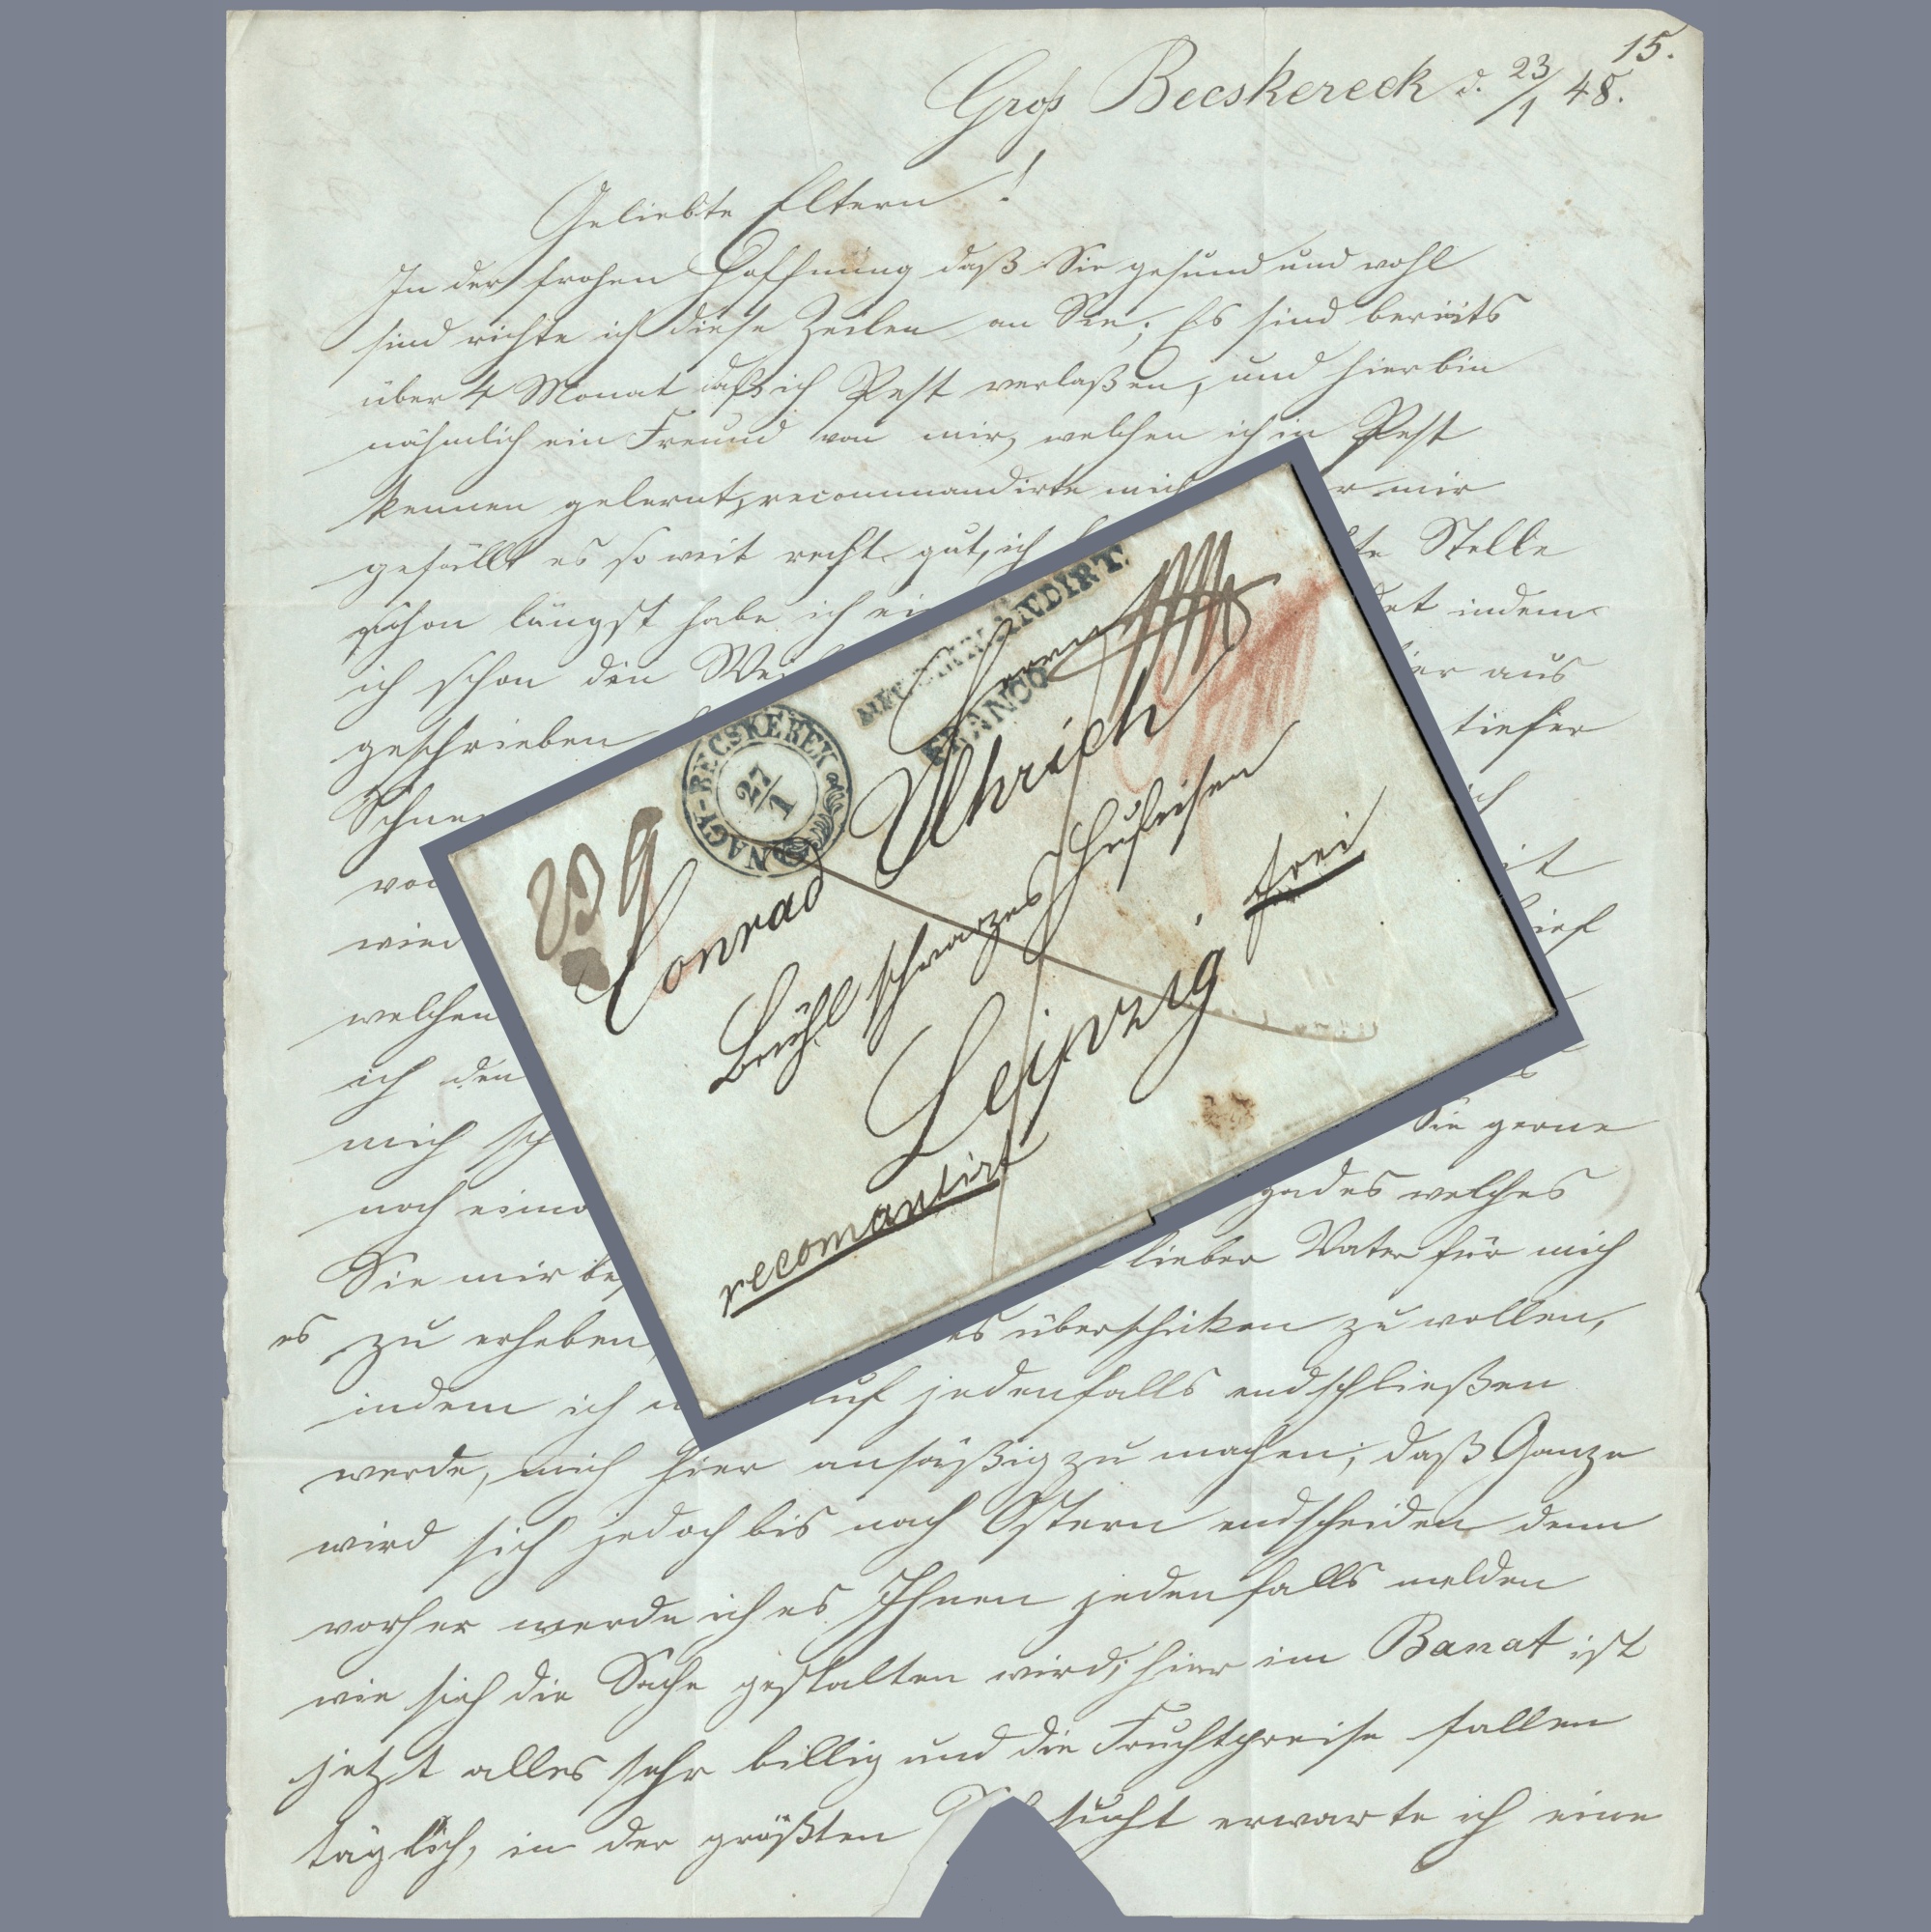 15.
Groß Becskereck d. 23/1 48.
Geliebte Eltern!
In der frohen Hoffnung daß Sie gesund und wohl
sind richte ich diese Zeilen an Sie; Es sind bereits
über 4 Monat daß ich Pest verlaßen, und hier bin
nähmlich ein Freund von mir, welchen ich in Pest
kennen gelernt, recommandirte mich r mir
gefällt es so weit recht gut, ich te Stelle
schon längst habe ich ei det indem
ich schon den We ier aus
geschrieben tiefer
Schnee ich
vo it
wied ief
welchen
ich den
mich sch Sie gerne
noch einma gades welches
Sie mir be lieber Vater für mich
es zu erheben, es überschicken zu wollen,
indem ich auf jedenfalls endschließen
werde, mich hier ansäßig zu machen; daß Ganze
wird sich jedoch bis nach Ostern endscheiden denn
vorher werde ich es Ihnen jedenfalls melden
wie sich die Sache gestalten wird; hier im Banat ist
jetzt alles sehr billig und die Fruchtpreise fallen
täglich, in der größten sucht erwarte ich eine
NAGY-BECSKEREK
27/1
FRANCO
Herrn
Conrad Uhrich
Brühl schwarzes Hufeisen
Leipzig
frei
recomantirt